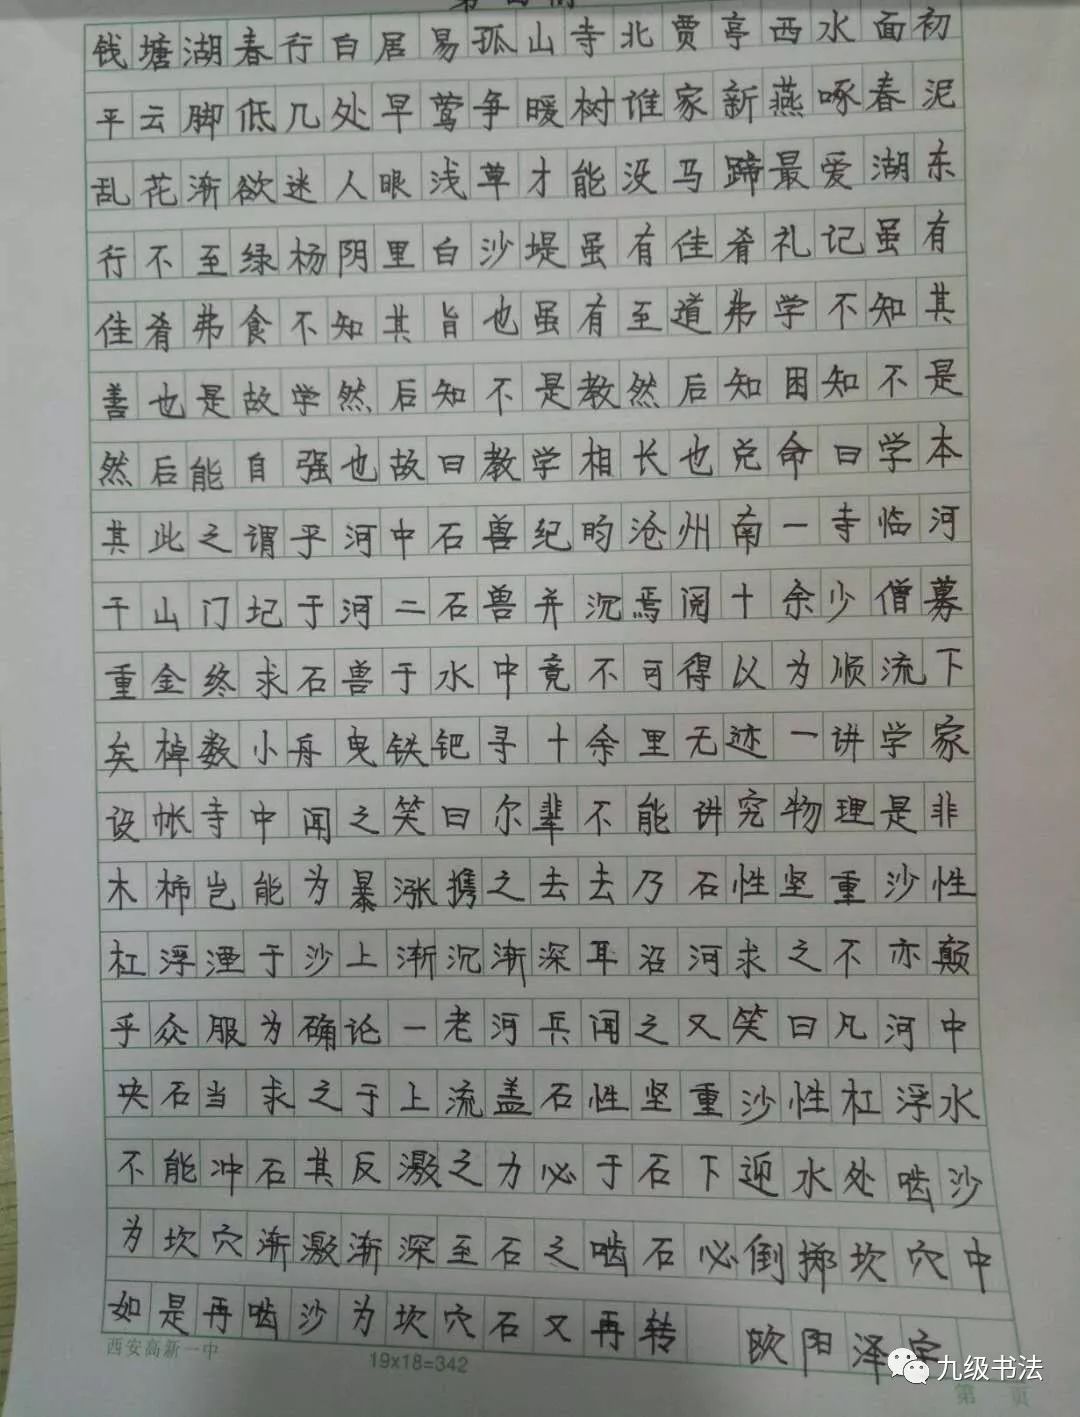 钱塘湖春行白居易孤山寺北贾亭西水面初
平云脚低几处早莺争暖树谁家新燕啄春泥
乱花渐欲迷人眼浅草才能没马蹄最爱湖东
行不至绿杨阴里白沙堤虽有佳肴礼记虽有
佳肴弗食不知其旨也虽有至道弗学不知其
善也是故学然后知不是教然后知困知不是
然后能自强也故曰教学相长也兑命曰学本
其此之谓乎河中石兽纪昀沧州南一寺临河
干山门圮于河二石兽并沉焉阅十余少僧募
重金终求石兽于水中竟不可得以为顺流下
矣棹数小舟曳铁钯寻十余里无迹一讲学家
设帐寺中闻之笑曰尔辈不能讲究物理是非
木柿岂能为暴涨携之去去乃石性坚重沙性
杠浮湮于沙上渐沉渐深耳沿河求之不亦颠
乎众服为确论一老河兵闻之又笑曰凡河中
失石当求之于上流盖石性坚重沙性杠浮水
不能冲石其反激之力必于石下迎水处啮沙
为坎穴渐激渐深至石之啮石必倒掷坎穴中
如是再啮沙为坎穴石又再转 欧阳泽宇
西安高新一中 19x18=342 九级书法
第 页